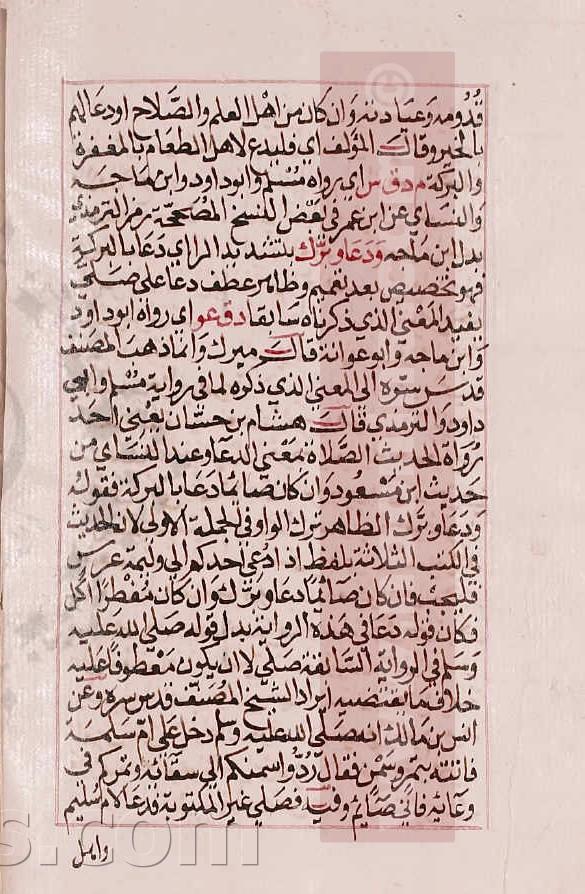 قدومه وعيادته وان كان من اهل العلم والصلاح او دعا لهم
بالخير وقال المؤلف اي فليدع لاهل الطعام بالمغفرة
والبركة م د ق س اي رواه مسلم وابو داود وابن ماجه
والنساي عن ابن عمر في بعض النسخ المصححة رمز الترمذي
بدل ابن ماجه ودعا وبرك بتشديد الراي دعا بالبركة
فهو تخصيص بعد تعميم وظاهر عطف دعا على صلى
يفيد المعنى الذي ذكرناه سابقا د ق عو اي رواه ابو داود
وابن ماجه وابو عوانة قال ميرك وانما ذهب المصنف
قدس سره الى المعنى الذي ذكره لما في رواية مسلم وابي
داود والترمذي قال هشام بن حسان يعني احد
رواة الحديث الصلاة بمعنى الدعا وعند النساي من
حديث ابن مسعود وان كان صائما دعا بالبركة فقوله
ودعا وبرك الظاهر ترك الواو في الجملة الاولى لان الحديث
في الكتب الثلاثة بلفظ اذا دعي احدكم الى وليمة عرس
فليجب فان كان صائما دعا وبرك وان كان مفطرا اكل
فكان قوله دعا في هذه الرواية بدل قوله صلى الله عليه
وسلم في الرواية السابقة صلى لا ان يكون معطوفا عليه
خلاف ما يقتضيه ايراد الشيخ المصنف قدس سره وعن
انس بن مالك انه صلى الله عليه وسلم دخل على ام سلمة
فاتته بتمر وسمن فقال ردوا سمنكم الى سقائه وتمركم في
وعائه فاني صائم وفيه فصلى غير المكتوبة فدعا لام سليم
واهل
s.com